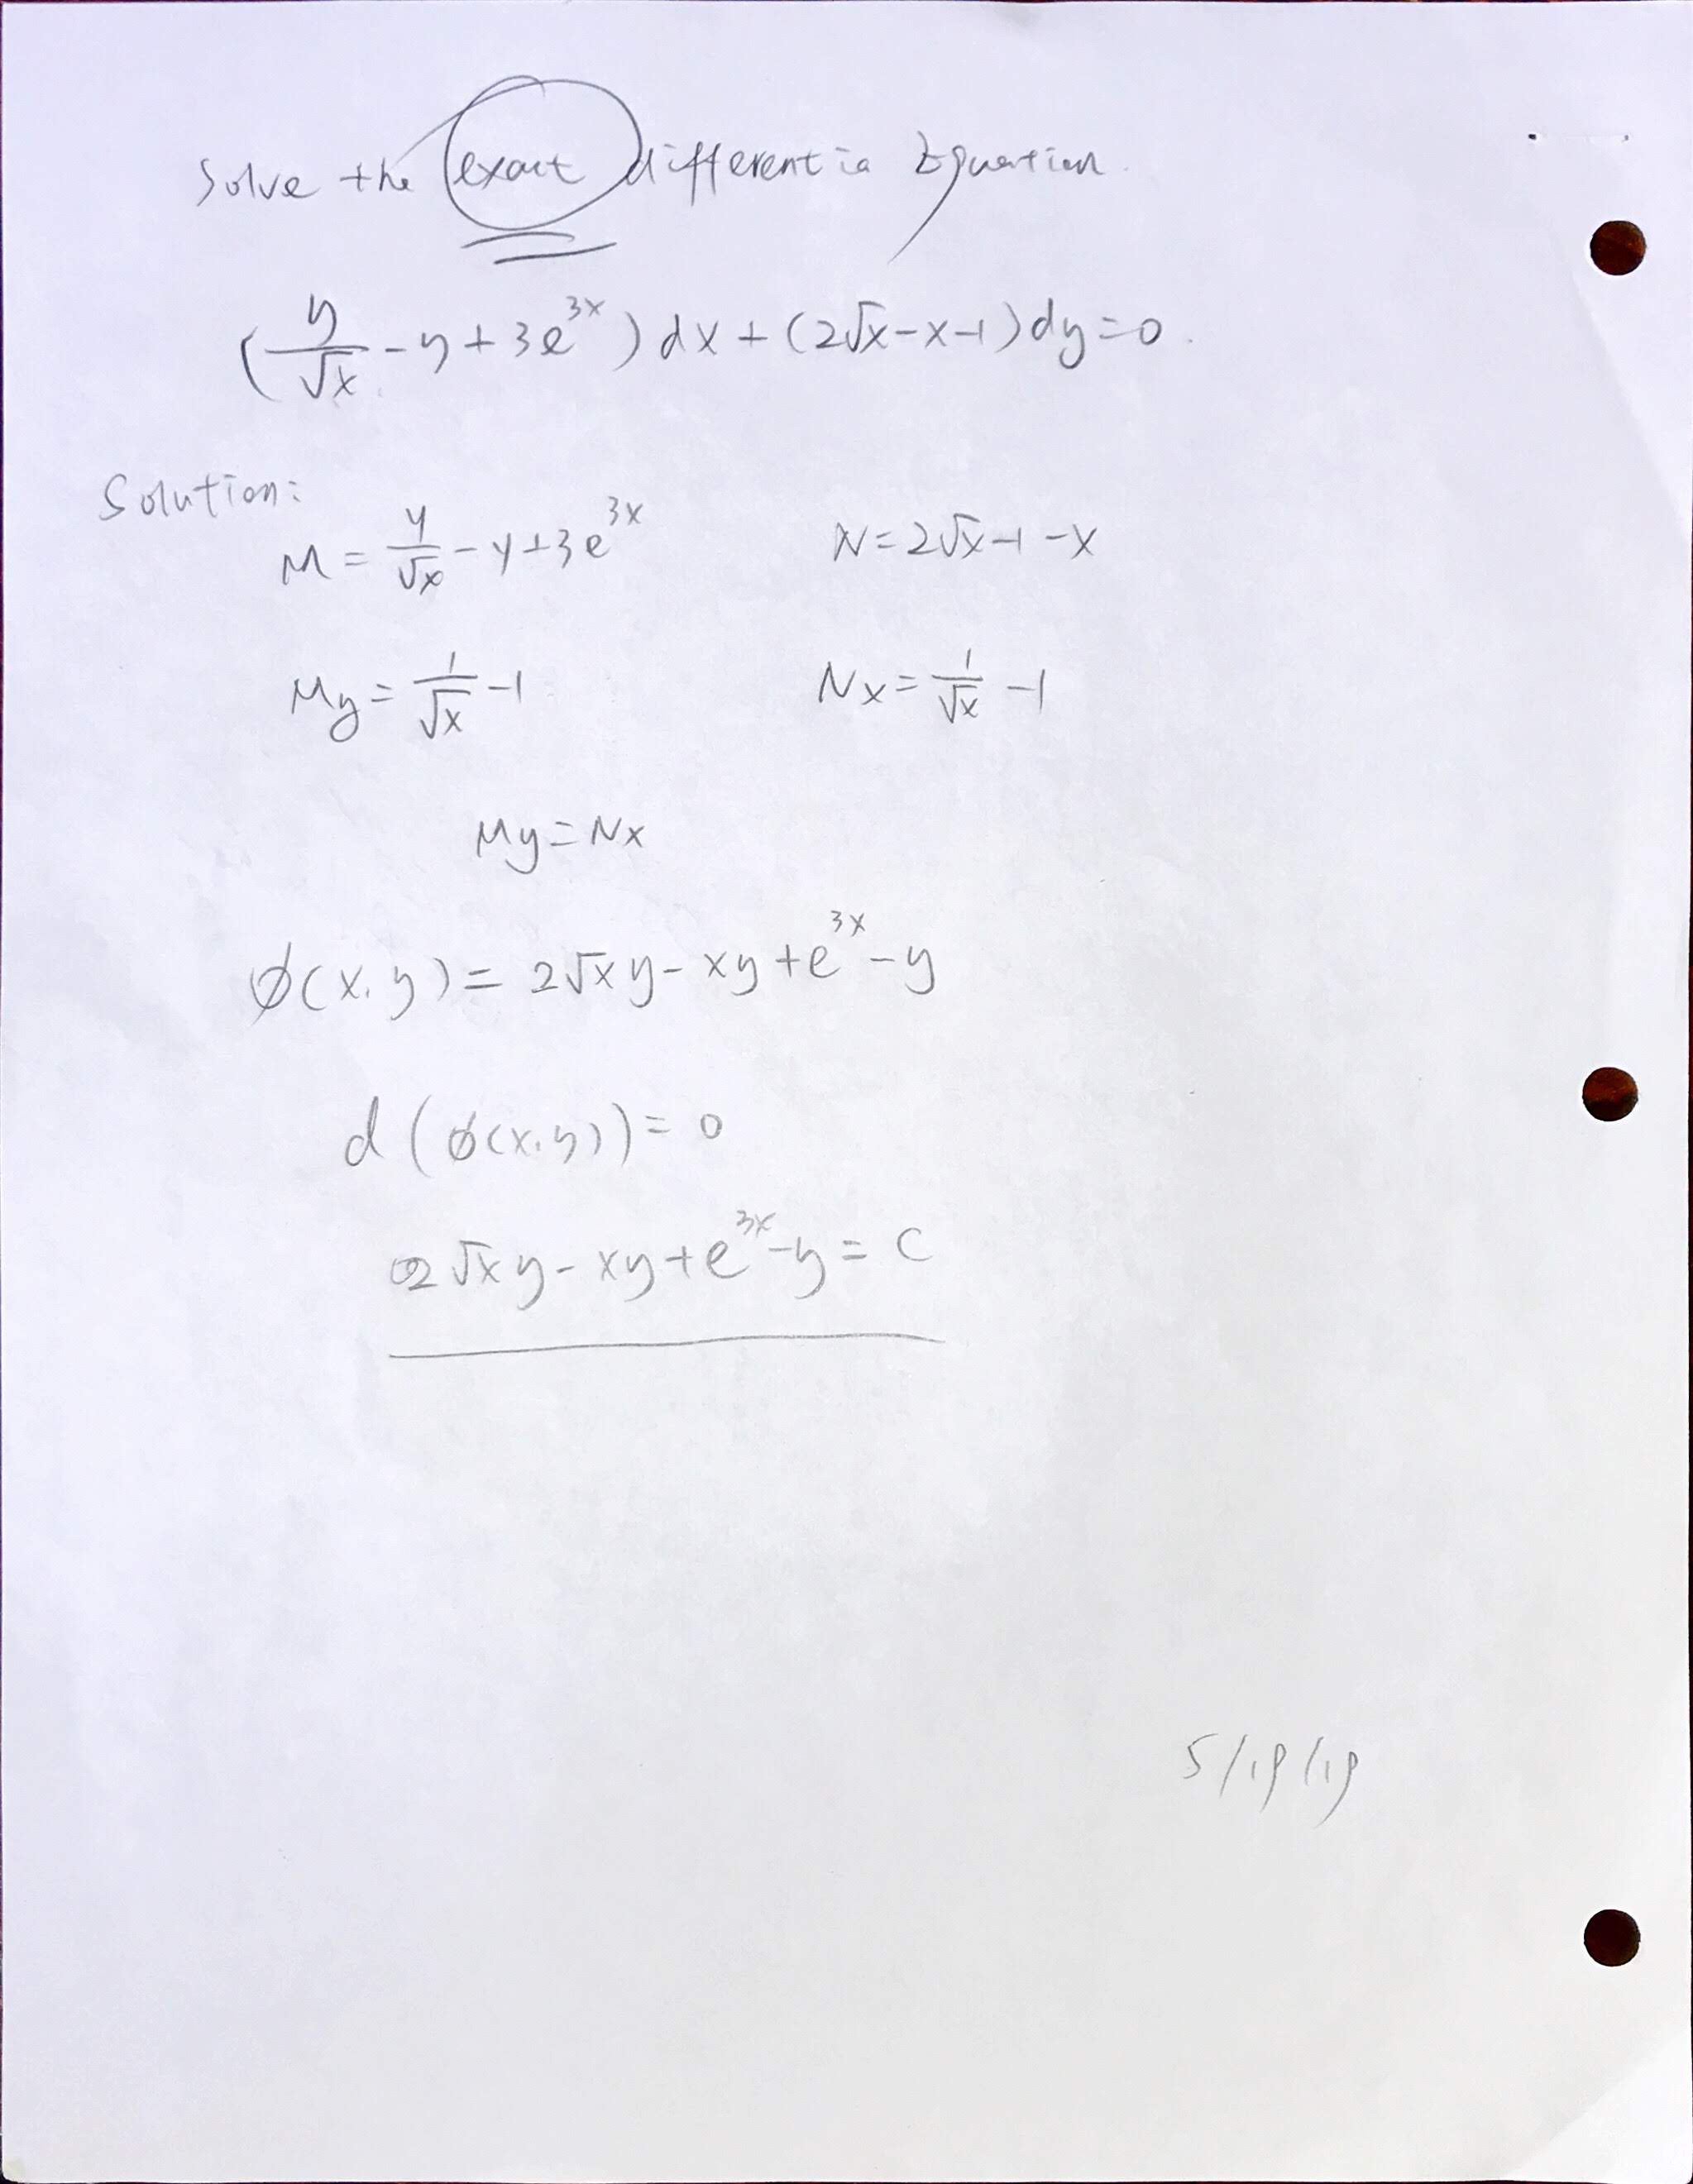 Solve the exact differentia Equation.
(y/√x - y + 3e^3x) dx + (2√x - x - 1) dy = 0.
Solution:
M = y/√x - y + 3e^3x N = 2√x - 1 - x
My = 1/√x - 1 Nx = 1/√x - 1
My = Nx
ø(x, y) = 2√x y - xy + e^3x - y
d(ø(x, y)) = 0
2√x y - xy + e^3x - y = C
5/19/19